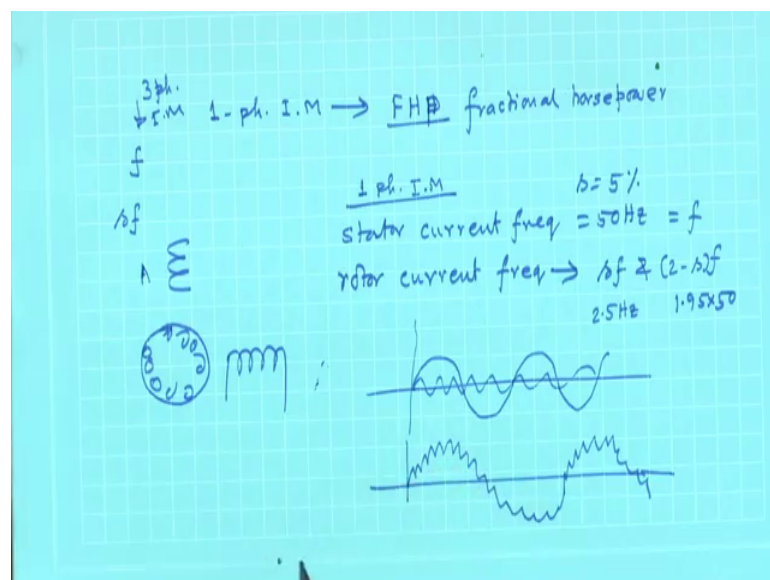 3ph.
I.M 1-ph. I.M → FHP fractional horsepower
f
1 ph. I.M s=5%
sf stator current freq = 50Hz = f
rotor current freq → sf & (2-s)f
2.5Hz 1.95×50